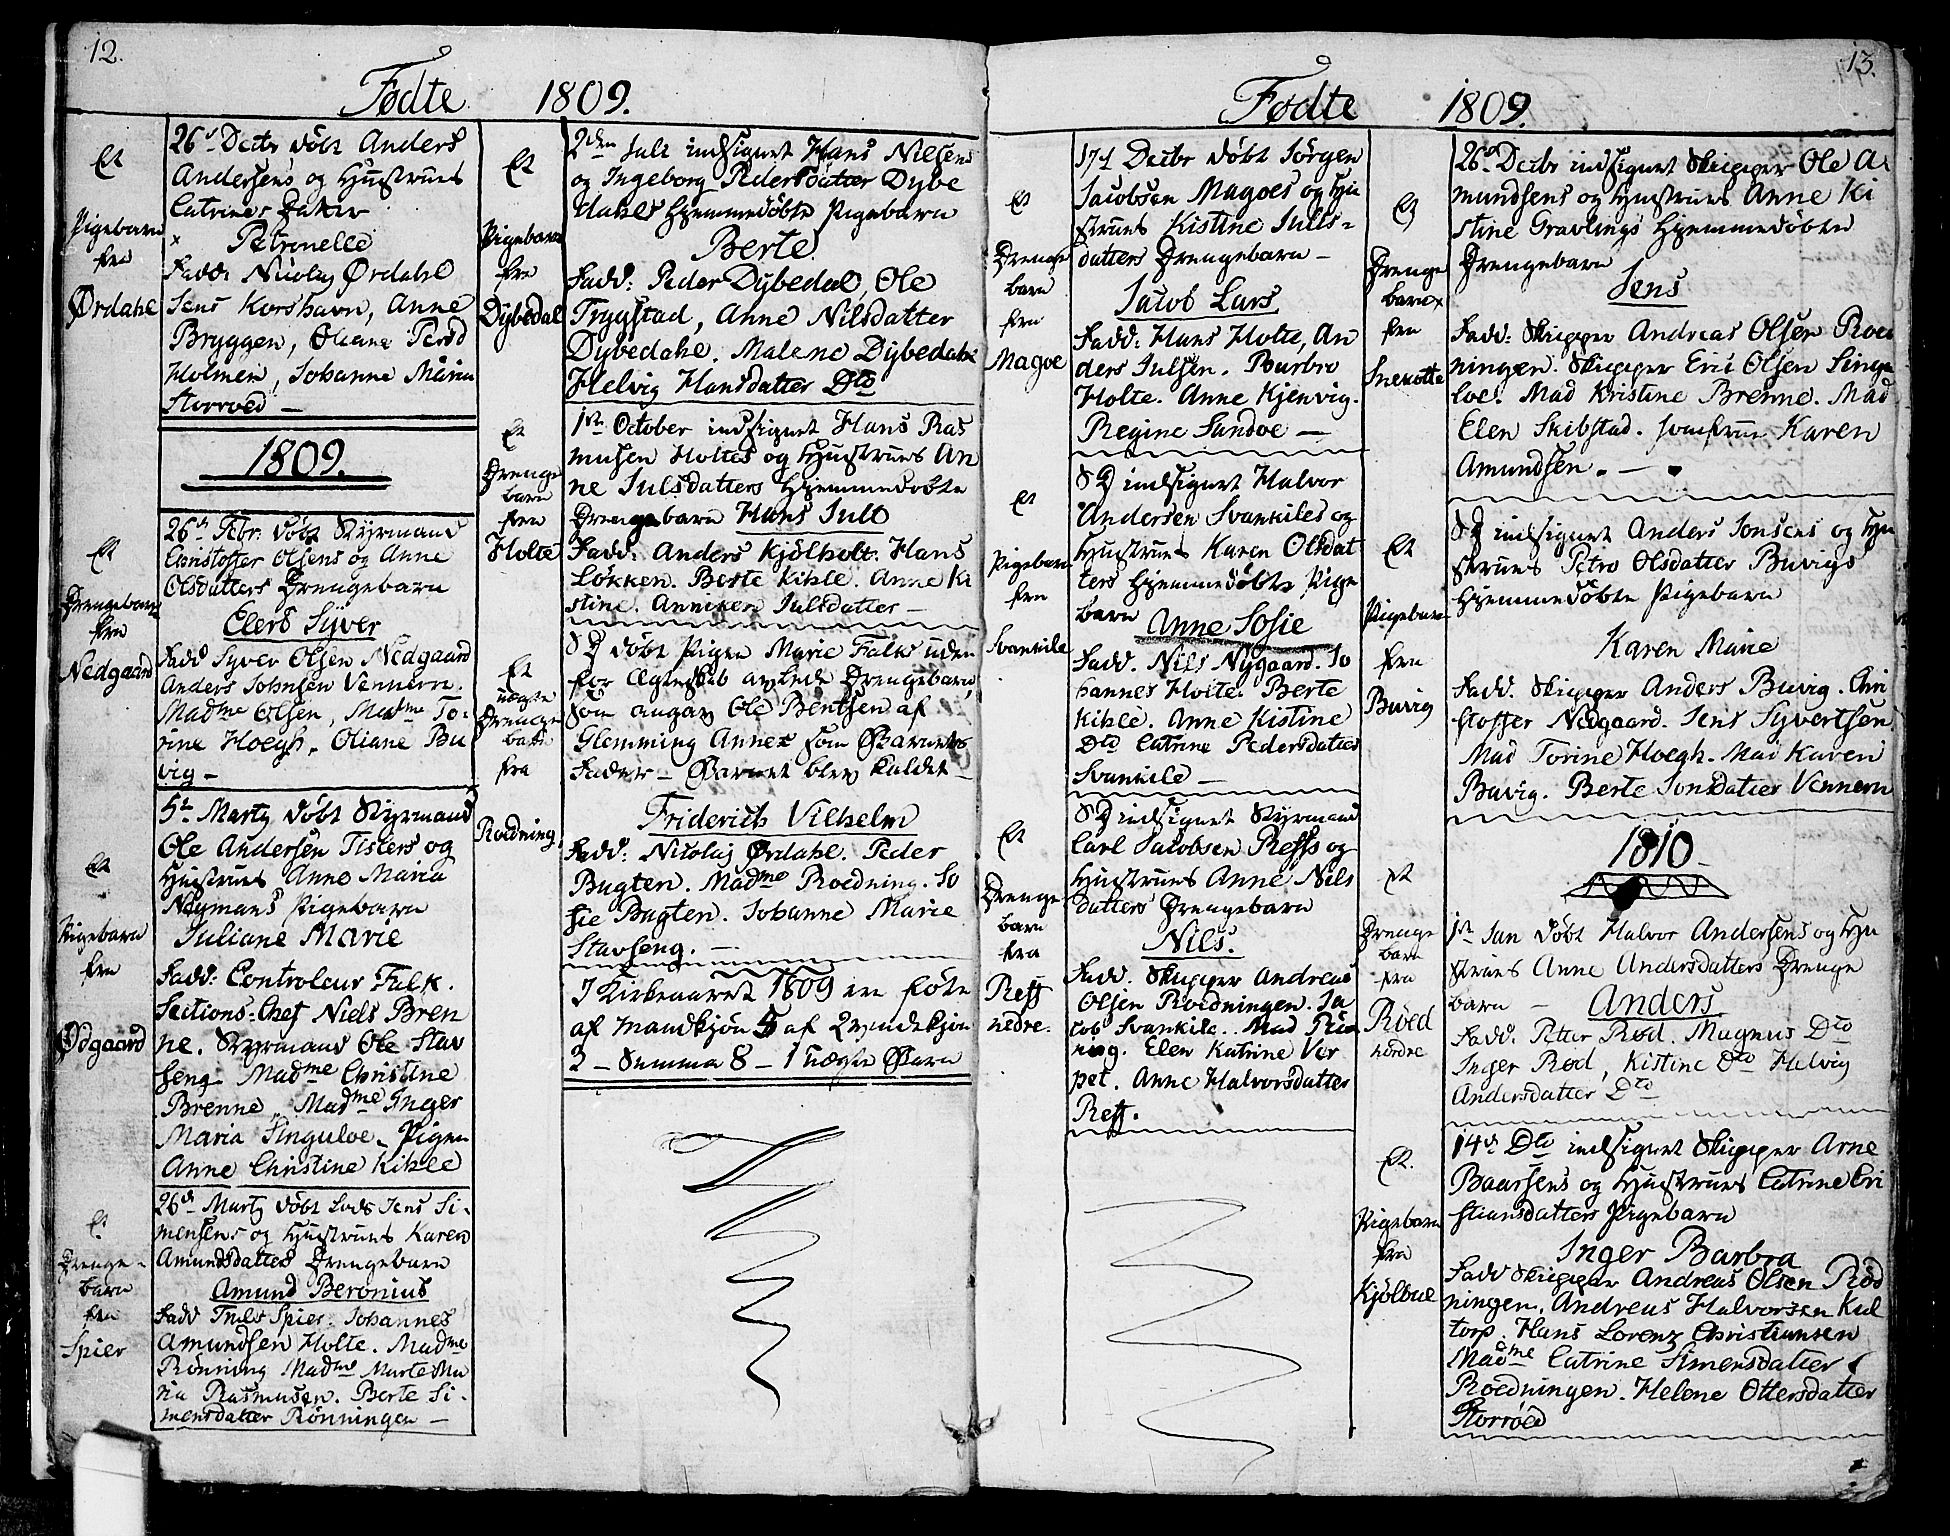 12.
Fødte 1809.
Et
Pigebarn
fra
Ørdahl
26d Decbr døbt Anders
Andersens og Hustrues
Catrines Datter
Petronelle
Fadd: Nicolaj Ørdahl
Jens Korshavn, Anne
Bryggen, Oliane Persd
Holmen, Johanne Maria
Storroed —
1809.
Et
Drengebarn
fra
Nedgaard
26d Febr. døbt Styrmand
Christoffer Olsens og Anne
Olsdatters Drengebarn
Elers Syver
Fadd Syver Olsen Nedgaard
Anders Johnsen Vennern.
Madme Olsen, Madme To-
rine Hoegh, Oliane Bu
vig —
Et
Pigebarn
fra
Ødgaard
5te Marty døbt Styrmand
Ole Andersen Tisters og
Hustrues Anne Maria
Neymans Pigebarn
Juliane Marie
Fadd: Controleur Falk.
Sections-Chef Niels Bren
ne. Styrmand Ole Stav
seng. Madme Christine
Brenne, Madme Inger
Maria Singuloe, Pigen
Anne Christine Kihle
Et
Drenge-
barn
fra
Spier
26d Marty døbt Lods Jens Si-
mensens og Hustrues Karen
Amundsdatters Drengebarn
Amund Beronius
Fadd Truls Spier. Johannes
Amundsen Holte. Madme
Rönning Madme Marte Ma
ria Rasmusen. Berte Si-
mensdatter Rönningen —
Et
Pigebarn
fra
Dybedal
2den Juli indsignet Hans Nilsens
og Ingeborg Pedersdatter Dybe
dahls Hjemmedöbte Pigebarn
Berte
Fadd: Peder Dybedal, Ole
Trygstad, Anne Nilsdatter
Dybedahl. Malene Dybedahl
Helvig Hansdatter Dto
Et
Drenge
barn
fra
Holte
1ste October indsignet Hans Ras
musen Holtes og Hustrues An
ne Julsdatters Hjemmedöbte
Drengebarn Hans Jull
Fadd: Anders Kjölholt. Hans
Løkken. Berte Kihle. Anne Ki
stine. Anniken Julsdatter —
Et
uægte
Drenge
barn
fra
Roedning
SD döbt Pigen Marie Falks uden
for Ægteskab avlede Drengebarn,
som angav Ole Bentsen af
Glemming Annex som Barnets
Fader — Barnet blev kaldet —
Friderich Vilhelm
Fadd: Nicolaj Ørdahl. Peder
Bugten. Madme Roedning. So
fie Bugten. Johanne Marie
Stavseng. —
I Kirkeaaret 1809 ere födte
af Mandkjön 5 af Qvindekjön
3 — Summa 8 — 1 uægte Barn
13.
Fødte 1809.
Et
Drenge
barn
fra
Magoe
17d Decbr döbt Jörgen
Jacobsen Magoes og Hu
strues Kistine Julls-
datters Drengebarn —
Jacob Lars
Fadd: Hans Holte, An
ders Julsen. Barbro
Holte. Anne Kjenvig.
Regine Sandoe —
Et
Pigebarn
fra
Svankile
SD indsignet Halvor
Andersen Svankiles og
Hustrues Karen Olsdat
ters Hjemmedöbte Pige
barn Anne Sofie
Fadd. Nils Nygaard. Jo
hannes Holte. Berte
Kihle. Anne Kistine
Dto Catrine Pedersdatter
Svankile —
Et
Drenge
barn
fra
Reff
nedre.
SD indsignet Styrmand
Carl Jacobsen Reffs og
Hustrues Anne Nils
datters Drengebarn
Nils.
Fadd. Skipper Andreas
Olsen Roedningen. Ja
cob Svankile. Mad Röd
ning. Elen Katrine Ver
pet. Anne Halvorsdatter
Reff.
Et
Drenge
barn
fra
Snekotte
26d Decbr indsignet Skipper Ole A
mundsens og Hustrues Anne Ki
stine Gravlings Hjemmedöbte
Drengebarn
Jens
Fadd: Skipper Andreas Olsen Roed
ningen. Skipper Eric Olsen Singe
loe. Mad Kristine Brenne. Mad
Elen Skibstad. Jomfrue Karen
Amundsen. —
Et
Pigebarn
fra
Buvig
SD indsignet Anders Jonsens og Hu
strues Petro Olsdatter Buvigs
Hjemmedöbte Pigebarn
Karen Marie
Fadd. Skipper Anders Buvig. Chri
stoffer Nedgaard. Jens Syvertsen
Mad Torine Hoegh. Mad Karen
Buvig. Berte Jonsdatter Vennern
1810
Et
Drenge
barn
fra
Röed
nordre
1ste Jan döbt Halvor Andersens og Hu
strues Anne Andersdatters Drenge
barn — Anders
Fadd. Peter Röd. Magnus Dto
Inger Röd, Kistine Dto Helvig
Andersdatter Dto
Et.
Pigebarn
fra
Kjölbue
14d Dto indsignet Skipper Arne
Baarsens og Hustrues Catrine Cri
stiansdatters Pigebarn
Inger Barbra
Fadd Skipper Andreas Olsen Röd
ningen. Andreas Halvorsen Kul
torp. Hans Lorenz Christiansen
Madme Catrine Simensdatter
Roedningen. Helene Ottersdatter
Storröed